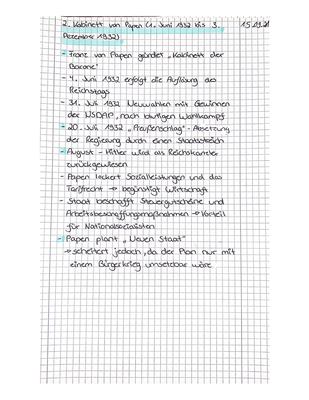 2. Kabinett von Papen (1. Juni 1932 bis 3. 15.09.21
Dezember 1932)
- Franz von Papen gündet „Kabinett der
Barone"
- 4. Juni 1932 erfolgt die Auflösung des
Reichstags
- 31. Juli 1932 Neuwahlen mit Gewinnen
der NSDAP, nach blutigen Wahlkampf
- 20. Juli 1932 „Preußenschlag" - Absetzung
der Regierung durch einen Staatsstreich
- August - Hitler wird als Reichskanzler
zurückgewiesen
- Papen lockert Sozialleistungen und das
Tarifrecht → begünstigt Wirtschaft
- Staat beschafft Steuergutscheine und
Arbeitsbeschaffungsmaßnahmen → Vorteil
für Nationalsozialisten
- Papen plant „Neuen Staat"
→ scheitert jedoch, da der Plan nur mit
einem Bürgerkrieg umsetzbar wäre